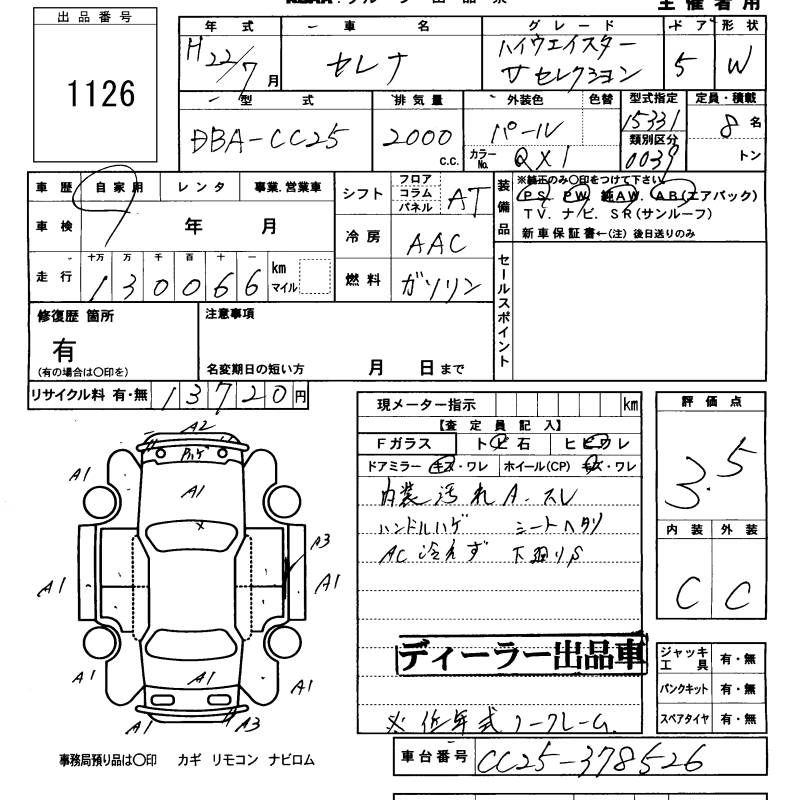 主催者用
出品番号
1126
年式 車名 グレード ドア 形状
H22/7月 セレナ ハイウェイスター
Vセレクション 5 W
型式 排気量 外装色 色替 型式指定 定員・積載
DBA-CC25 2000 c.c. パール 15331 8名
類別区分
カラーNo. QX1 0039 トン
車歴 自家用 レンタ 事業.営業車
車検 年 月
走行 十万 万 千 百 十 一
130066 km マイル
シフト フロア コラム パネル AT
冷房 AAC
燃料 ガソリン
装備品 ※純正のみ〇印をつけて下さい
PS. PW. 純AW. AB(エアバック)
TV. ナビ. SR(サンルーフ)
新車保証書←(注) 後日送りのみ
セールスポイント
修復歴 箇所
有
(有の場合は〇印を)
注意事項
名変期日の短い方 月 日まで
リサイクル料 有・無 13720円
現メーター指示 km
【査定員記入】
Fガラス トビ石 ヒビワレ
ドアミラー キズ・ワレ ホイール(CP) キズ・ワレ
内装汚れ A.スレ
ハンドルハゲ シートヘタリ
AC冷えず 下廻りS
ディーラー出品車
※低年式ノークレーム.
評価点
3.5
内装 外装
C C
ジャッキ工具 有・無
パンクキット 有・無
スペアタイヤ 有・無
車台番号 CC25-378526
A2
ハゲ
A1
A1
A1
X
A3
A1
A1
A1
A1
A1
A1
A3
事務局預り品は〇印 カギ リモコン ナビロム